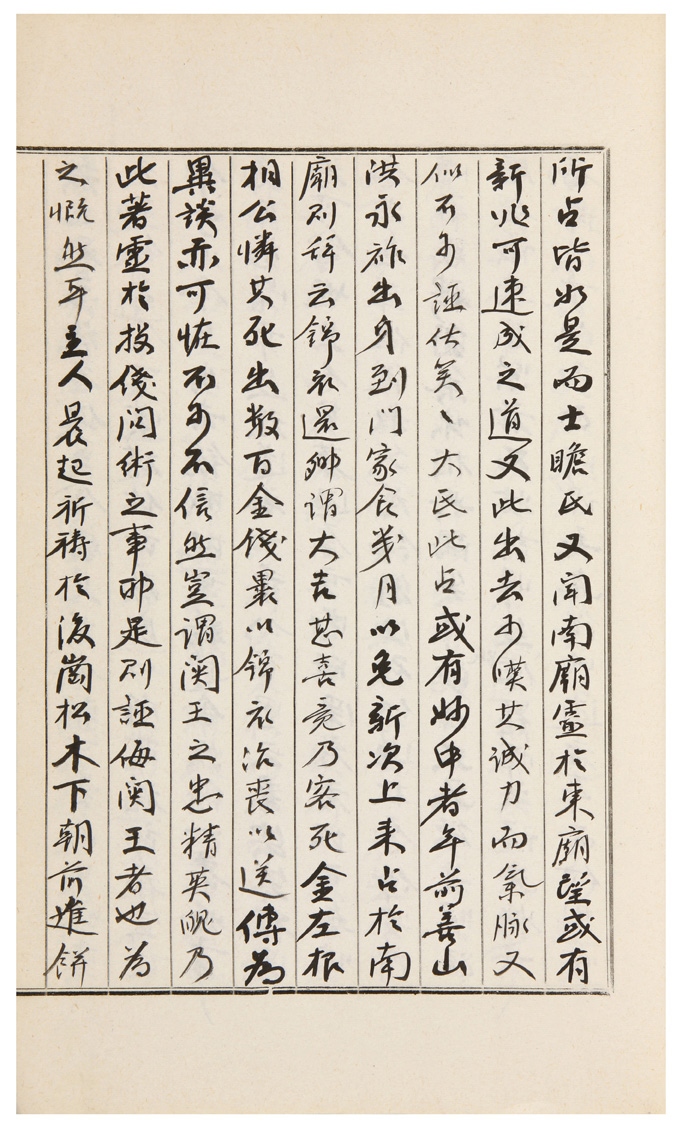 所占皆如是而士瞻氏又聞南廟靈於東廟望或有
新兆可速成之道又此出去可嘆其誠力而氣脉又
似不可誣什矣〻大氐此占或有妙中者年前善山
洪永祚出身到門家食幾月以免新次上来占於南
廟則辞云錦衣還鄉謂大吉甚喜竟乃客死金左根
相公憐其死出数百金錢曩以錦衣治喪以送傳為
異談亦可恠不可不信然豈謂関王之忠精英魄乃
此著靈於投錢问術之事耶是則誣侮関王者也為
之慨然耳主人晨起祈禱於後崗松木下朝前進餅